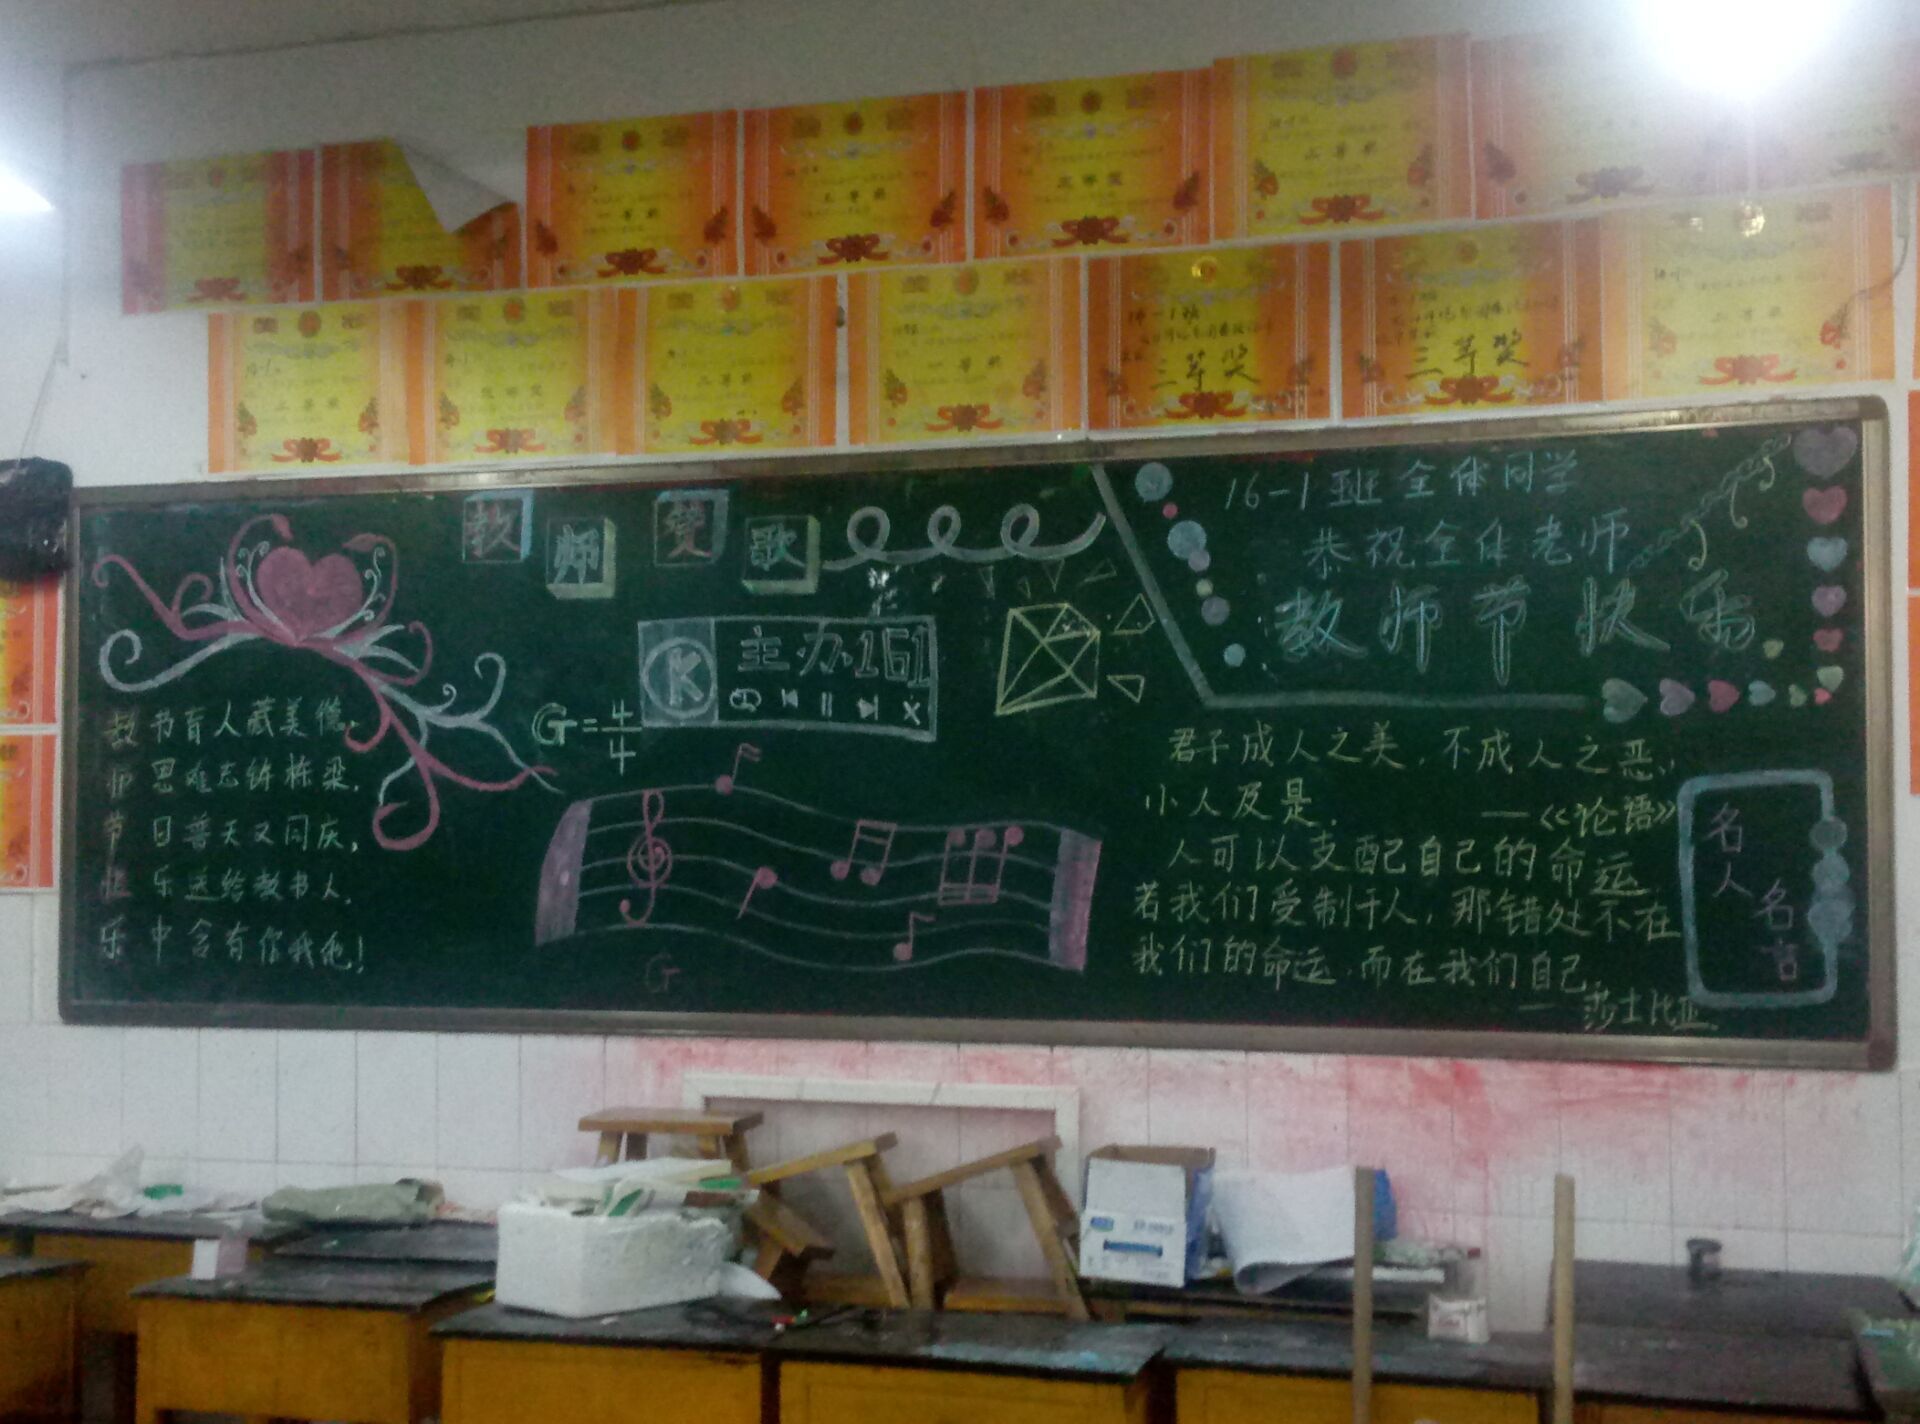 三等奖
三等奖
16-1班
教师赞歌
主办161
K
G=4/4
G
教书育人藏美德,
师恩难忘铸栋梁,
节日普天又同庆,
快乐送给教书人,
乐中含有你我他!
16-1班全体同学
恭祝全体老师
教师节快乐.
君子成人之美,不成人之恶,
小人反是.
—《论语》
人可以支配自己的命运
若我们受制于人,那错处不在
我们的命运,而在我们自己.
—莎士比亚
名人
名言